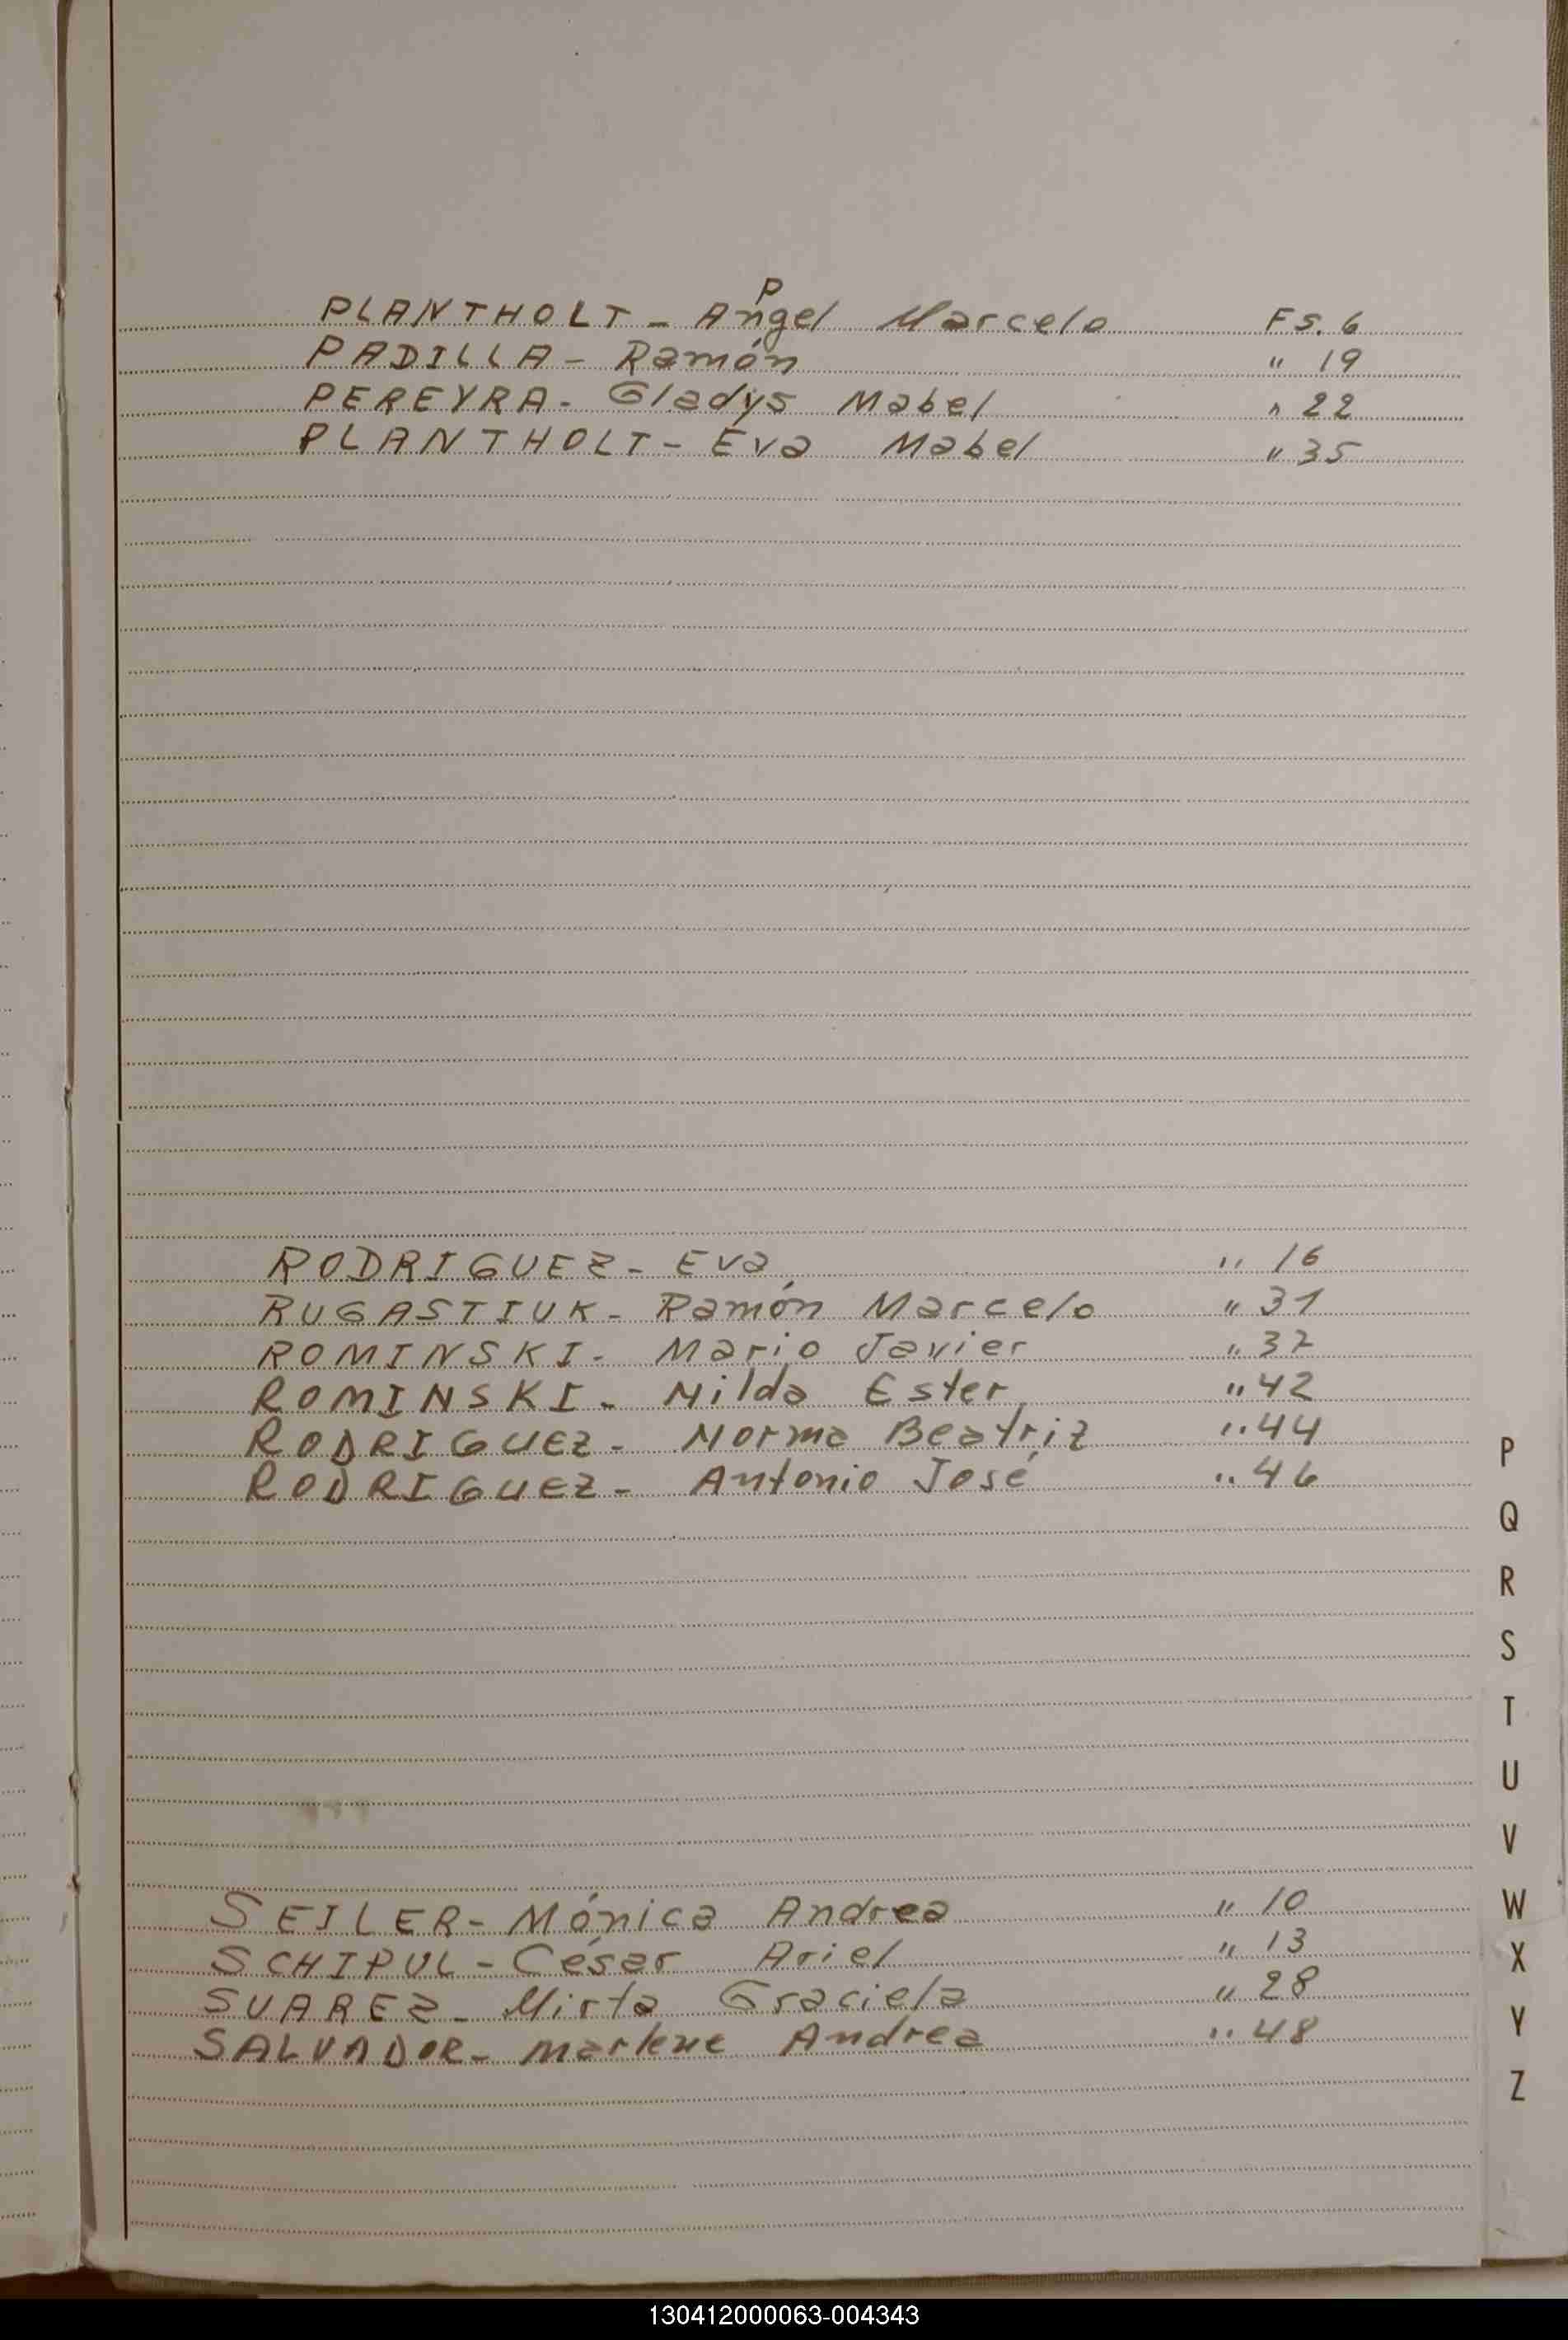 P
PLANTHOLT - Angel Marcelo Fs. 6
PADILLA - Ramón " 19
PEREYRA - Gladys Mabel " 22
PLANTHOLT - Eva Mabel " 35
RODRIGUEZ - Eva " 16
RUGASTIUK - Ramón Marcelo " 31
ROMINSKI - Mario Javier " 37
ROMINSKI - Nilda Ester " 42
RODRIGUEZ - Norma Beatriz " 44
RODRIGUEZ - Antonio José " 46
SEILER - Mónica Andrea " 10
SCHIPUL - César Ariel " 13
SUAREZ - Mirta Graciela " 28
SALVADOR - Marlene Andrea " 48
P
Q
R
S
T
U
V
W
X
Y
Z
130412000063-004343